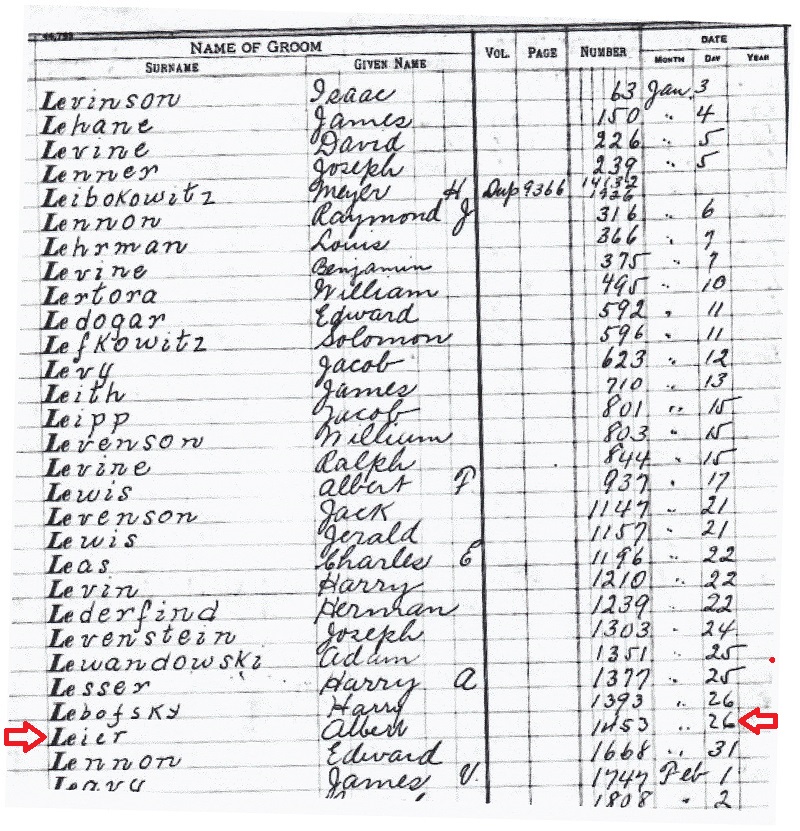 44,799
NAME OF GROOM VOL. PAGE NUMBER DATE
SURNAME GIVEN NAME MONTH DAY YEAR
Levinson Isaac 63 Jan. 3
Lehane James 150 " 4
Levine David 226 5
Lenner Joseph 239 " 5
Leibokowitz Meyer H Dup 9366 14132 1926
Lennon Raymond J 316 " 6
Lehrman Louis 366 " 7
Levine Benjamin 375 " 7
Lertora William 495 " 10
Ledogar Edward 592 " 11
Lefkowitz Solomon 596 " 11
Levy Jacob 623 " 12
Leith James 710 " 13
Leipp Jacob 801 " 15
Levenson William 803 " 15
Levine Ralph 844 " 15
Lewis Albert F 937 " 17
Levenson Jack 1147 " 21
Lewis Jerald 1157 " 21
Leas Charles E 1196 " 22
Levin Harry 1210 " 22
Lederfind Herman 1239 " 22
Levenstein Joseph 1303 " 24
Lewandowski Adam 1351 " 25
Lesser Harry A 1377 " 25
Lebofsky Harry 1393 " 26
Leier Albert 1453 " 26
Lennon Edward 1668 " 31
Leavy James V. 1747 Feb 1
1808 " 2